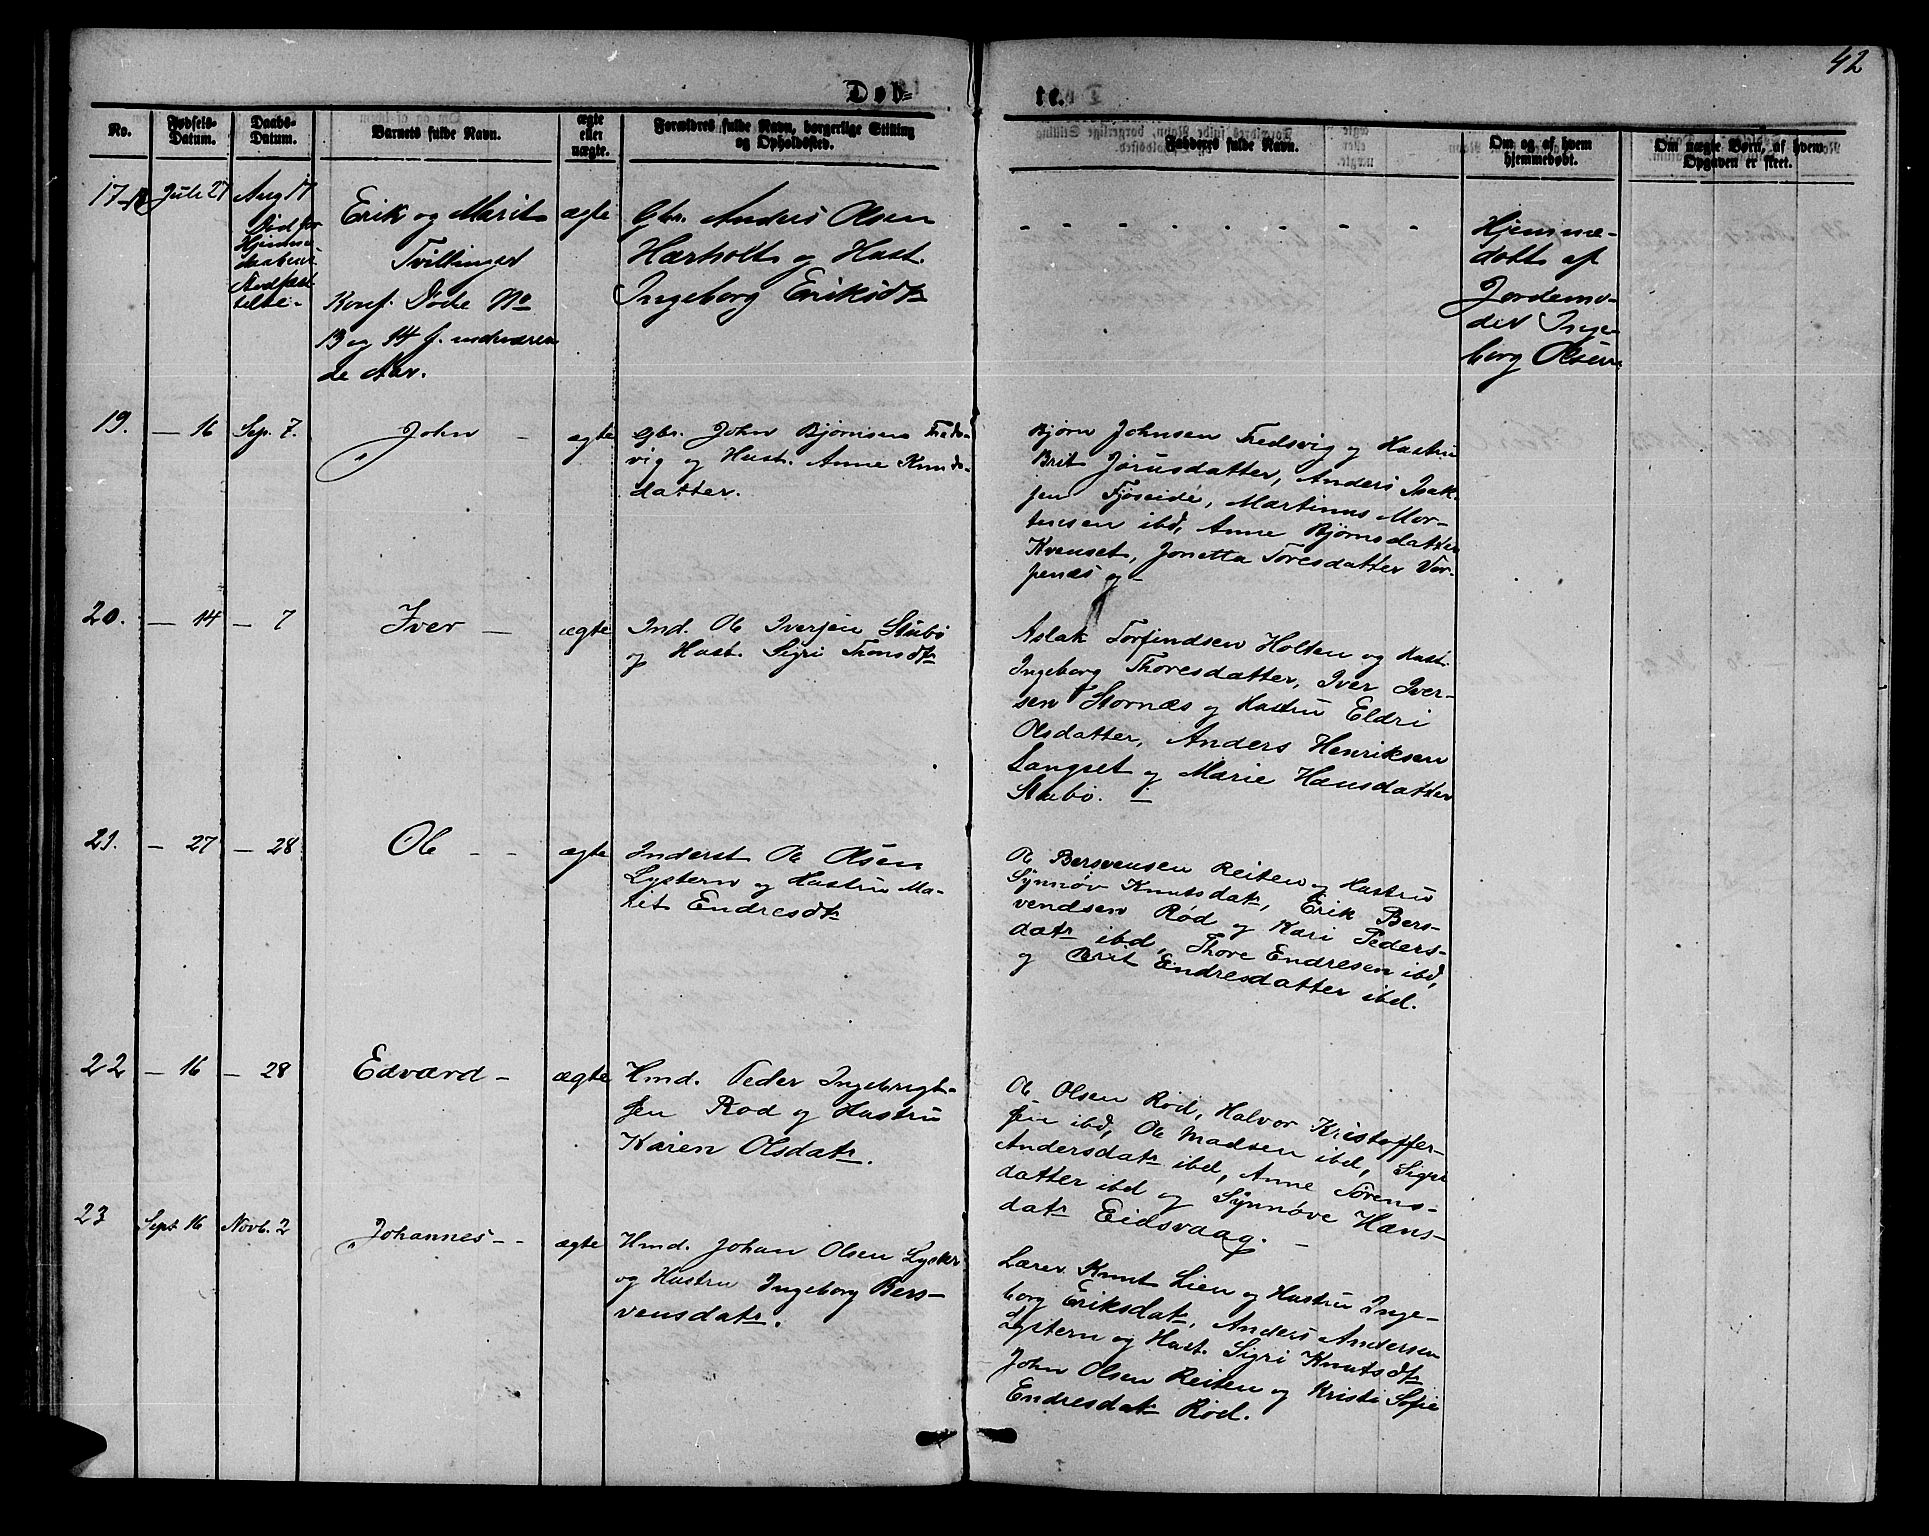 42
Døb-
te.
No.
Fødsels-
Datum.
Daabs-
Datum.
Barnets fulde Navn.
ægte
eller
uægte.
Forældres fulde Navn, borgerlige Stilling
og Opholdssted.
Fadderes fulde Navn.
Om og af hvem
hjemmedøbt.
Om uægte Børn, af hvem
Opgaven er skeet.
17-18
Juli 27
Aug 17
Død før
Hjemme
daabens
Stadfæs
telse.
Erik og Marit
Tvillinger
Konf. Døde No
13 og 14 f. nærværen
de Aar.
ægte
Gbr. Anders Olsen
Hærholt og Hust.
Ingeborg Eriksdtr
Hjemme-
døbt af
Jordemo-
der Inge-
borg Olsen
19.
— 16
Sep. 7.
John
ægte
Gbr. John Bjørnsen Freds-
vig og Hust. Anne Knuds-
datter.
Bjørn Johnsen Fredsvig og Hustru
Brit Jørusdatter, Anders Isak-
sen Fjøseide, Martinus Mor-
tensen ibd, Anne Bjørnsdatter
Kvenset, Jonetta Toresdatter Tor-
penæs og —
20.
— 14
— 7
Iver —
ægte
Ind. Ole Iversen Stubø
og Hust. Sigri Tronsdtr
Aslak Torfindsen Holten og Hust.
Ingeborg Thoresdatter, Iver Iver-
sen Stornæs og Hustru Eldri
Olsdatter, Anders Henriksen
Langset og Marie Hansdatter
Stubø. —
21.
— 27
— 28
Ole - -
ægte
Inderst Ole Olsen
Lystern og Hustru Ma-
ret Endresdtr
Ole Bersvensen Reiten og Hustru
Synnøv Knutsdatr, Erik Bers-
vendsen Rød og Kari Peders-
datr ibd, Thore Endresen ibd,
og Brit Endresdatter ibd.
22
— 16
— 28
Edvard -
ægte
Hmd. Peder Ingebrigt-
sen Rød og Hustru
Karen Olsdatr.
Ole Olsen Rød, Halvor Kristoffer-
sen ibd, Ole Madsen ibd, Sigri
Andersdatr ibd, Anne Sørens-
datter ibd og Synnøve Hans-
datr Eidsvaag. —
23
Sept 16
Novb. 2
Johannes - -
ægte
Hmd. Johan Olsen Lyster
og Hustru Ingeborg Bers-
vensdatr.
Lærer Knut Lien og Hustru Inge-
borg Eriksdatr, Anders Andersen
Lystern og Hust. Sigri Knutsdtr
John Olsen Reiten og Kristi Sofie
Endresdatr Rød.